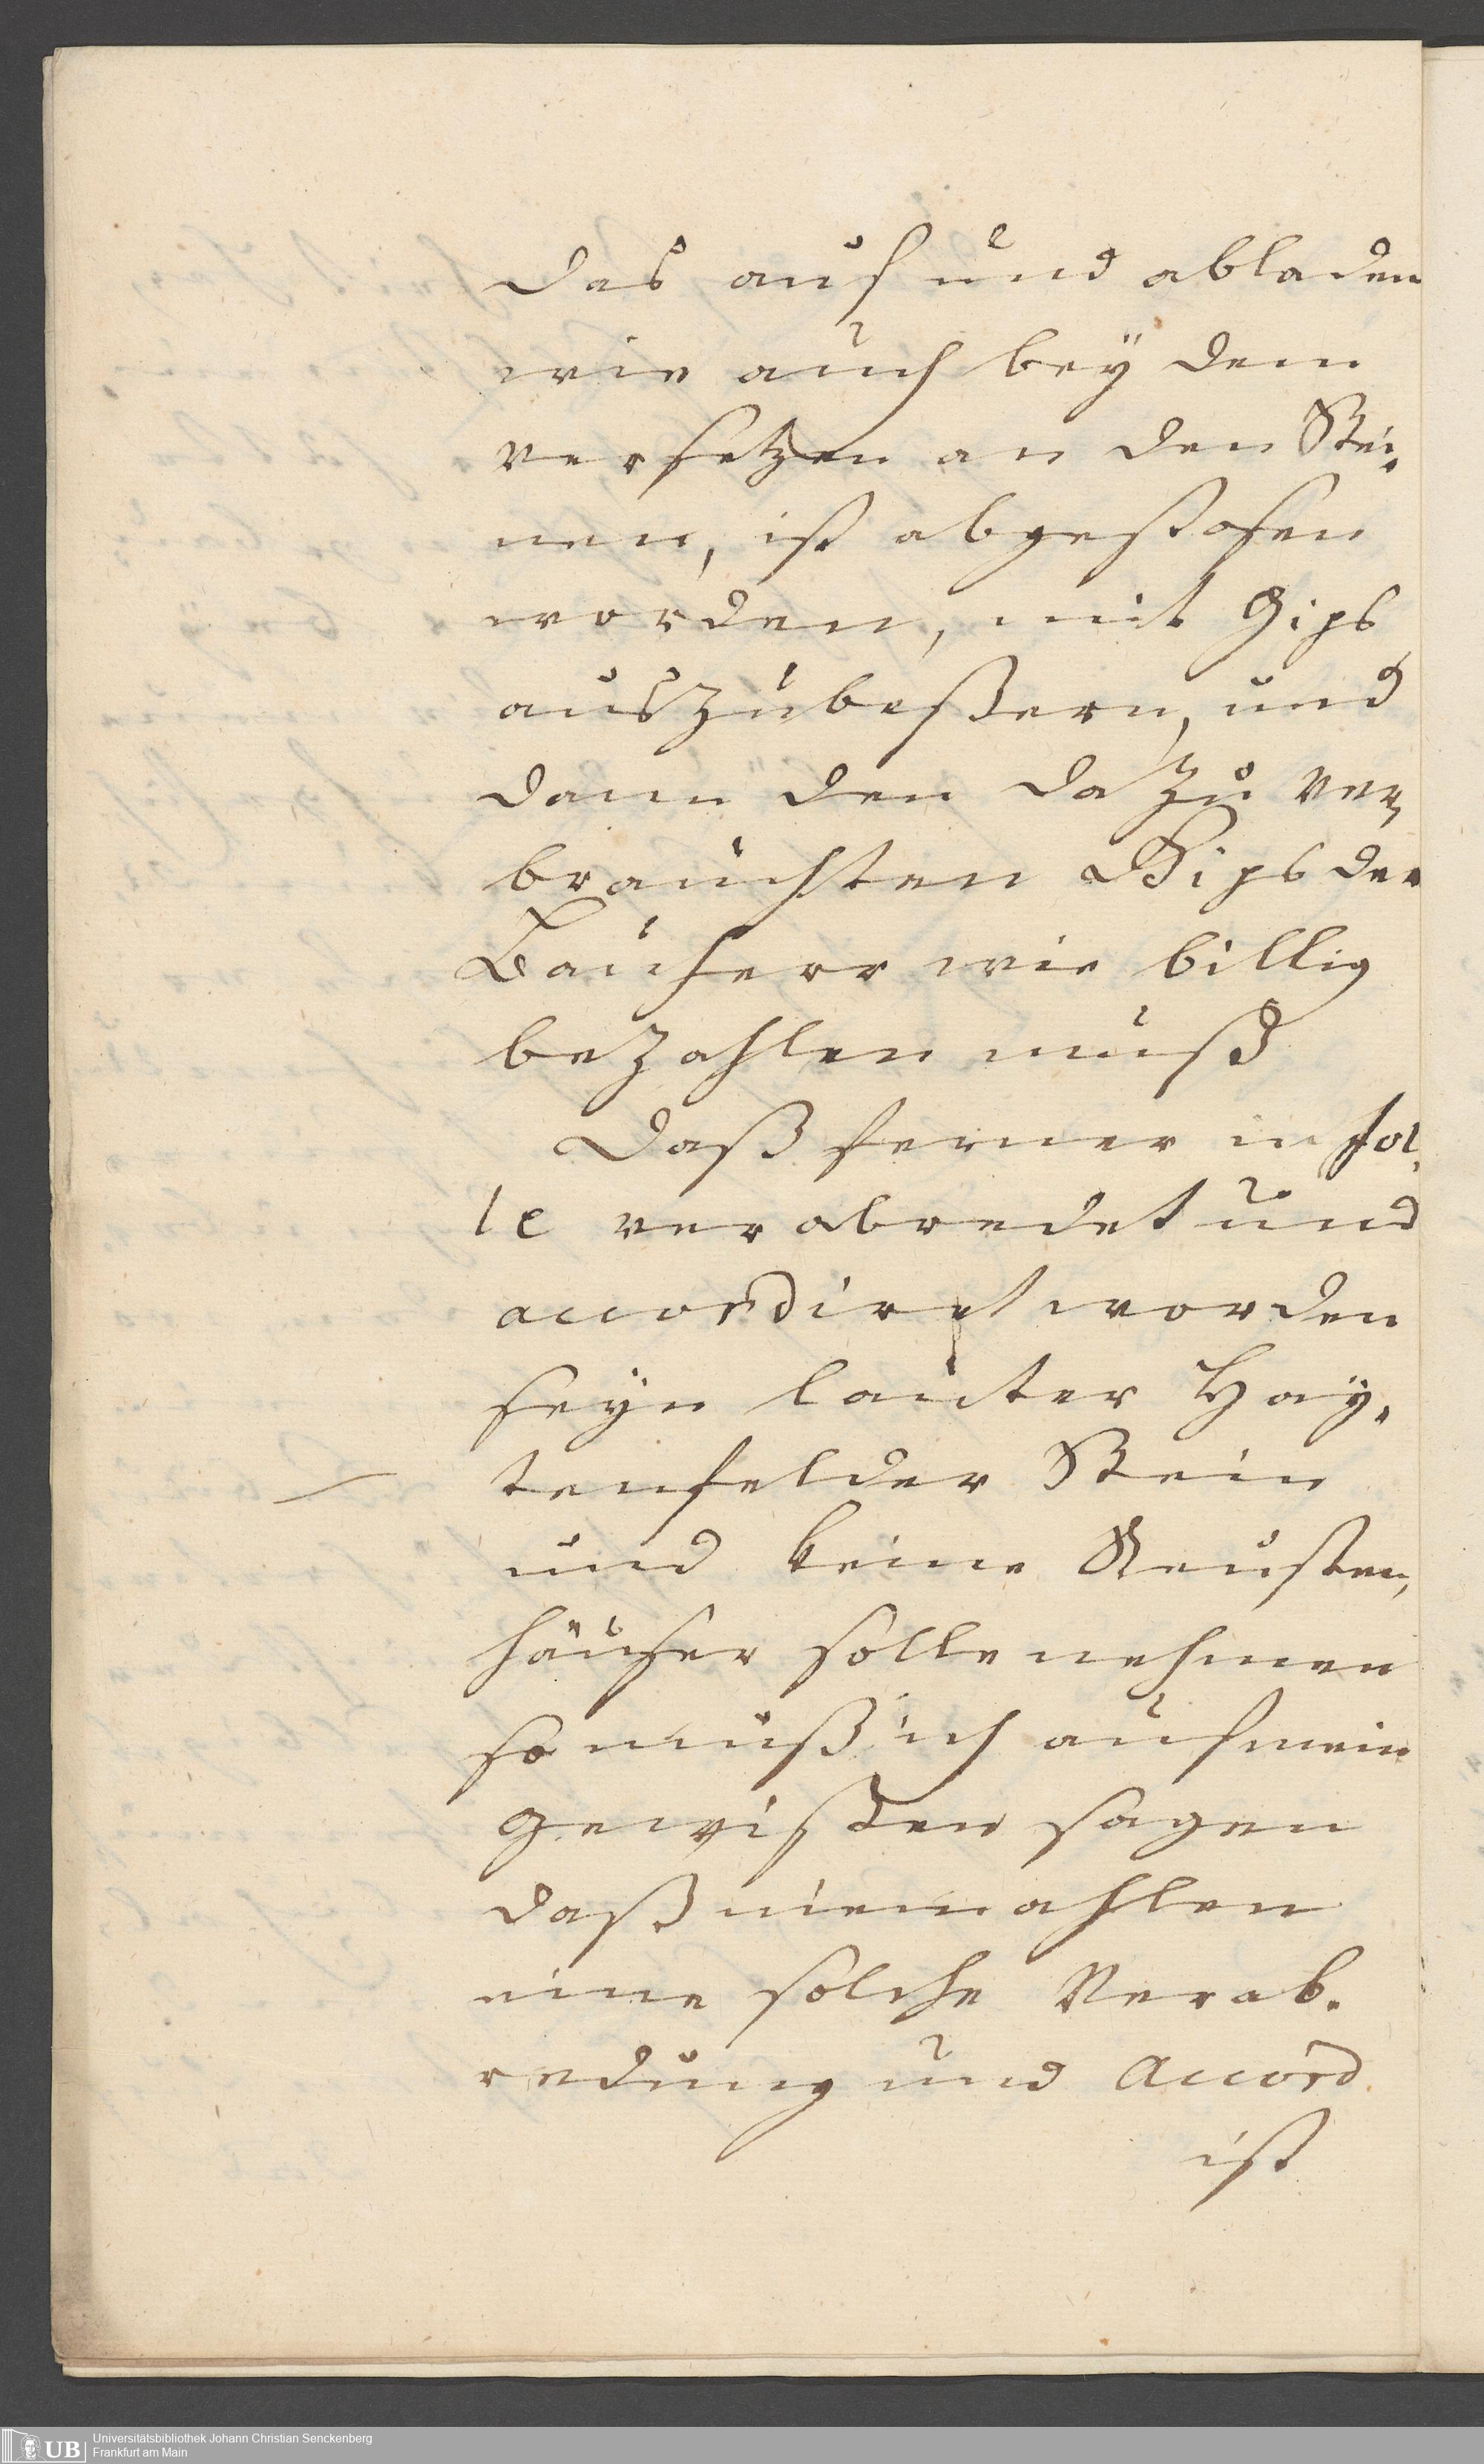 das auf und abladen
wie auch beÿ dem
versetzen an den Stei,
nen, ist abgestosen
worden, mit Gips
auszubeßern, und
dann den dazu ver,
brauchten Gips der
Bauherr wie billig
bezahlen muß
Daß ferner in sol,
le verabredet und
accordiret worden
seÿn lauter Haÿ,
tenfelder Stein
und keine Reusten,
häuser solle nehmen
so muß ich auf mein
gewißen sagen
daß niemahlen
eine solche Verab,
redung und Accord
ist
UB Universitätsbibliothek Johann Christian Senckenberg
Frankfurt am Main